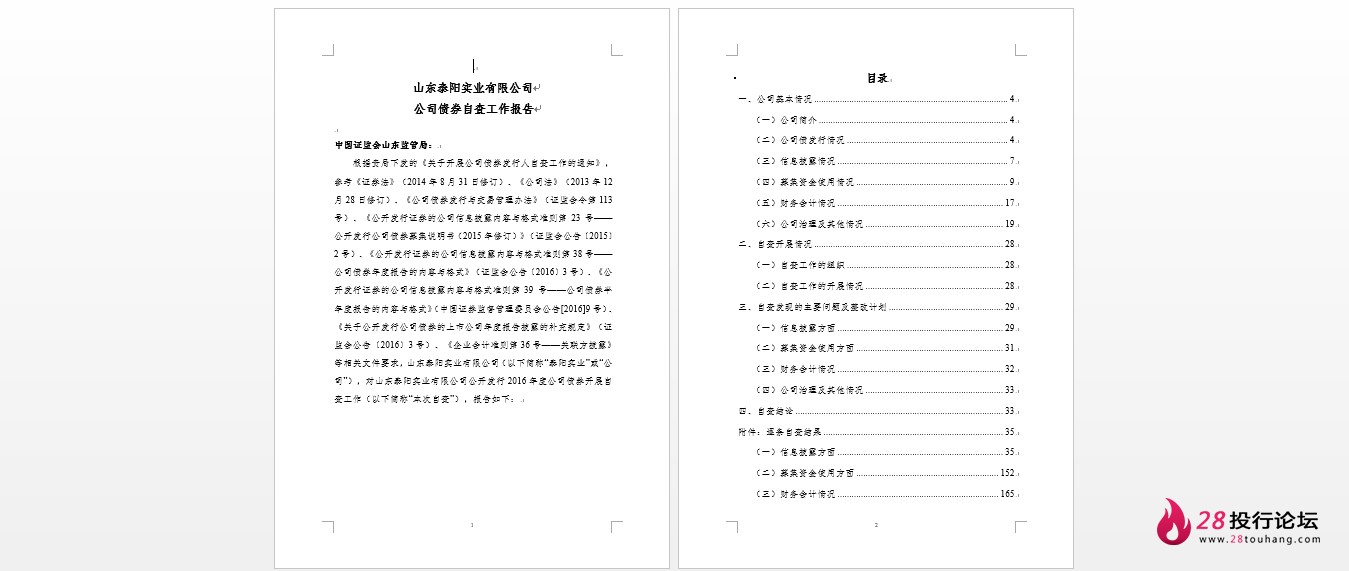 山东泰阳实业有限公司
公司债券自查工作报告
中国证监会山东监管局：
根据贵局下发的《关于开展公司债券发行人自查工作的通知》，
参考《证券法》（2014年8月31日修订）、《公司法》（2013年12
月28日修订）、《公司债券发行与交易管理办法》（证监会令第113
号）、《公开发行证券的公司信息披露内容与格式准则第 23 号——
公开发行公司债券募集说明书（2015年修订）》（证监会公告〔2015〕
2号）、《公开发行证券的公司信息披露内容与格式准则第38号——
公司债券年度报告的内容与格式》（证监会公告〔2016〕3号）、《公
开发行证券的公司信息披露内容与格式准则第 39 号——公司债券半
年度报告的内容与格式》（中国证券监督管理委员会公告[2016]9号）、
《关于公开发行公司债券的上市公司年度报告披露的补充规定》（证
监会公告〔2016〕3号）、《企业会计准则第36号——关联方披露》
等相关文件要求，山东泰阳实业有限公司（以下简称“泰阳实业”或“公
司”），对山东泰阳实业有限公司公开发行2016年度公司债券开展自
查工作（以下简称“本次自查”），报告如下：
1
目录
一、公司基本情况 4
（一）公司简介 4
（二）公司债发行情况 4
（三）信息披露情况 7
（四）募集资金使用情况 9
（五）财务会计情况 17
（六）公司治理及其他情况 19
二、自查开展情况 28
（一）自查工作的组织 28
（二）自查工作的开展情况 28
三、自查发现的主要问题及整改计划 29
（一）信息披露方面 29
（二）募集资金使用方面 31
（三）财务会计情况 32
（四）公司治理及其他情况 33
四、自查结论 33
附件：逐条自查结果 35
（一）信息披露方面 35
（二）募集资金使用方面 152
（三）财务会计情况 165
2
28投行论坛
www.28touhang.com